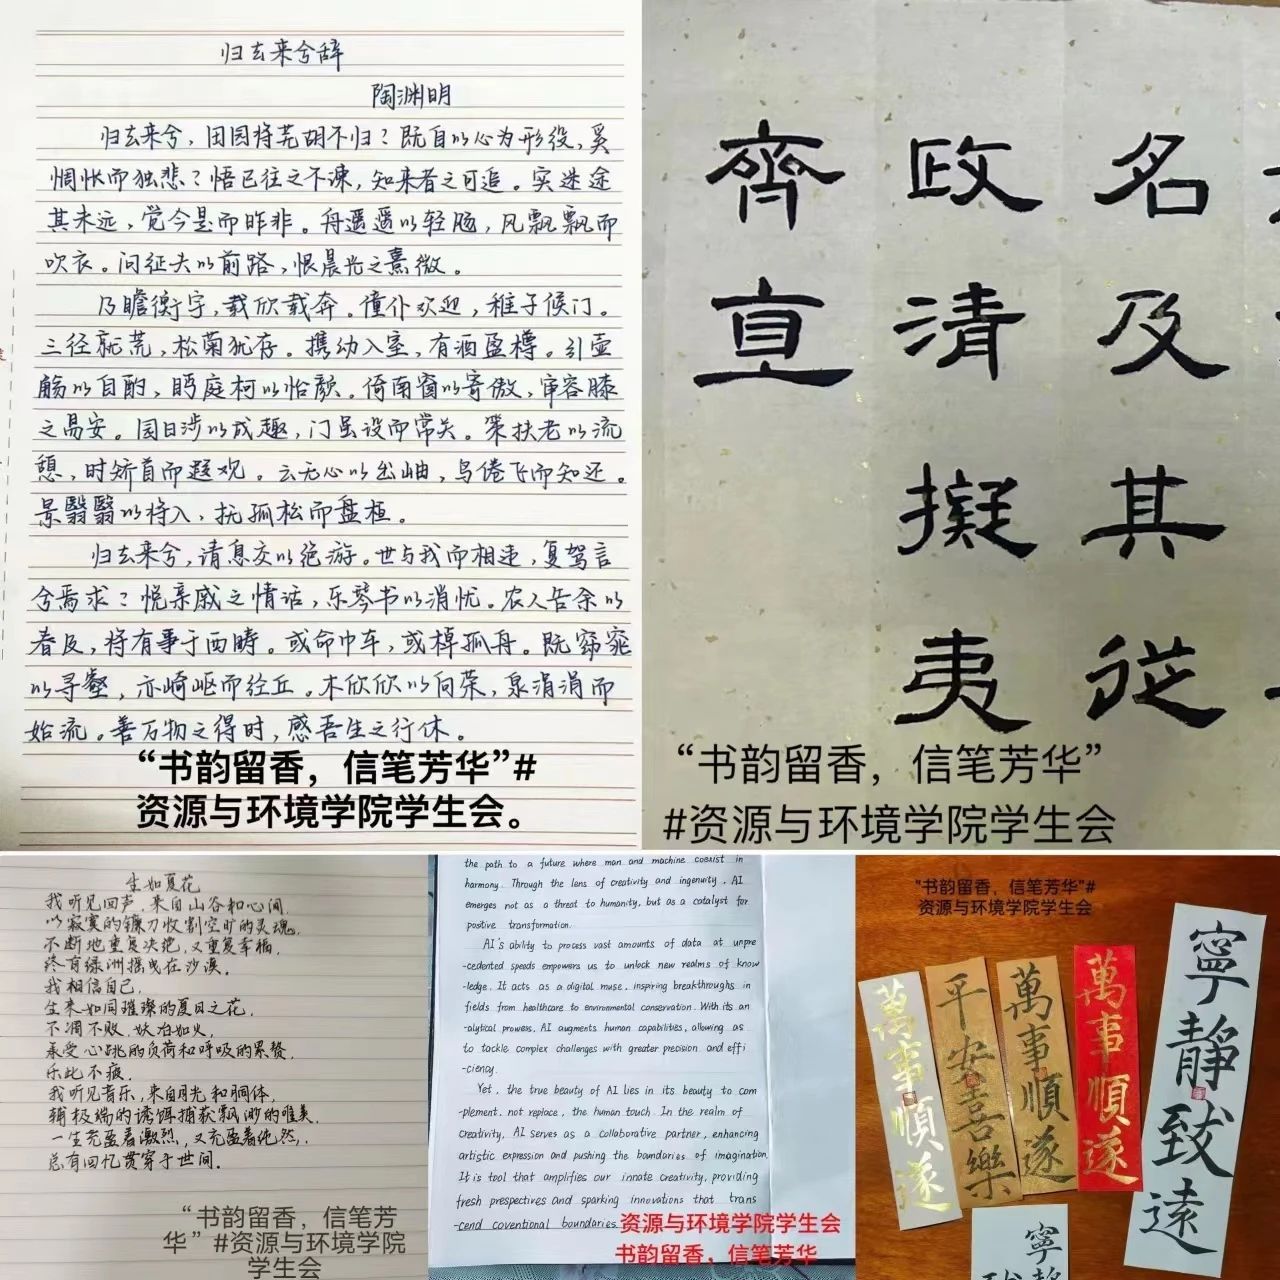 归去来兮辞
陶渊明
归去来兮，田园将芜胡不归？既自以心为形役，奚
惆怅而独悲？悟已往之不谏，知来者之可追。实迷途
其未远，觉今是而昨非。舟遥遥以轻飏，风飘飘而
吹衣。问征夫以前路，恨晨光之熹微。
乃瞻衡宇，载欣载奔。僮仆欢迎，稚子候门。
三径就荒，松菊犹存。携幼入室，有酒盈樽。引壶
觞以自酌，眄庭柯以怡颜。倚南窗以寄傲，审容膝
之易安。园日涉以成趣，门虽设而常关。策扶老以流
憩，时矫首而遐观。云无心以出岫，鸟倦飞而知还。
景翳翳以将入，抚孤松而盘桓。
归去来兮，请息交以绝游。世与我而相违，复驾言
兮焉求？悦亲戚之情话，乐琴书以消忧。农人告余以
春及，将有事于西畴。或命巾车，或棹孤舟。既窈窕
以寻壑，亦崎岖而经丘。木欣欣以向荣，泉涓涓而
始流。善万物之得时，感吾生之行休。
“书韵留香，信笔芳华”#
资源与环境学院学生会。
名及其从
政清拟夷
齊直
“书韵留香，信笔芳华”
#资源与环境学院学生会
生如夏花
我听见回声，来自山谷和心间，
以寂寞的镰刀收割空旷的灵魂，
不断地重复决绝，又重复幸福，
终有绿洲摇曳在沙漠。
我相信自己，
生来如同璀璨的夏日之花，
不凋不败，妖冶如火，
承受心跳的负荷和呼吸的累赘，
乐此不疲。
我听见音乐，来自月光和胴体，
辅极端的诱饵捕获飘渺的唯美，
一生充盈着激烈，又充盈着纯然，
总有回忆贯穿于世间。
“书韵留香，信笔芳
华”#资源与环境学院
学生会
the path to a future where man and machine coexist in
harmony. Through the lens of creativity and ingenuity, AI
emerges not as a threat to humanity, but as a catalyst for
positive transformation.
AI's ability to process vast amounts of data at unpre
-cedented speeds empowers us to unlock new realms of know
-ledge. It acts as a digital muse, inspiring breakthroughs in
fields from healthcare to environmental conservation. With its an
-alytical prowess, AI augments human capabilities, allowing as
to tackle complex challenges with greater precision and effi
-ciency.
Yet, the true beauty of AI lies in its beauty to com
-plement, not replace, the human touch. In the realm of
creativity, AI serves as a collaborative partner, enhancing
artistic expression and pushing the boundaries of imagination.
It is tool that amplifies our innate creativity, providing
fresh prespectives and sparking innovations that trans
-cend coventional boundaries.
资源与环境学院学生会
书韵留香，信笔芳华
"书韵留香，信笔芳华"#
资源与环境学院学生会
萬事順遂
平安喜樂
萬事順遂
萬事順遂
寧靜致遠
寧靜